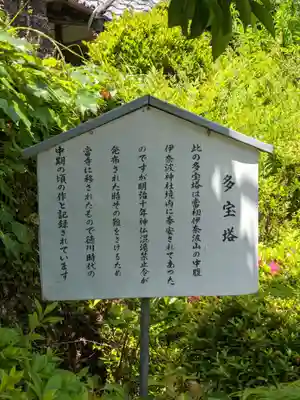 多宝塔
此の多宝塔は当初伊奈波山の中腹
伊奈波神社境内に奉安されてあった
のですが明治十年神仏混淆禁止令が
発布された時その難をさけるため
当寺に移されたもので徳川時代の
中期の頃の作と記録されています